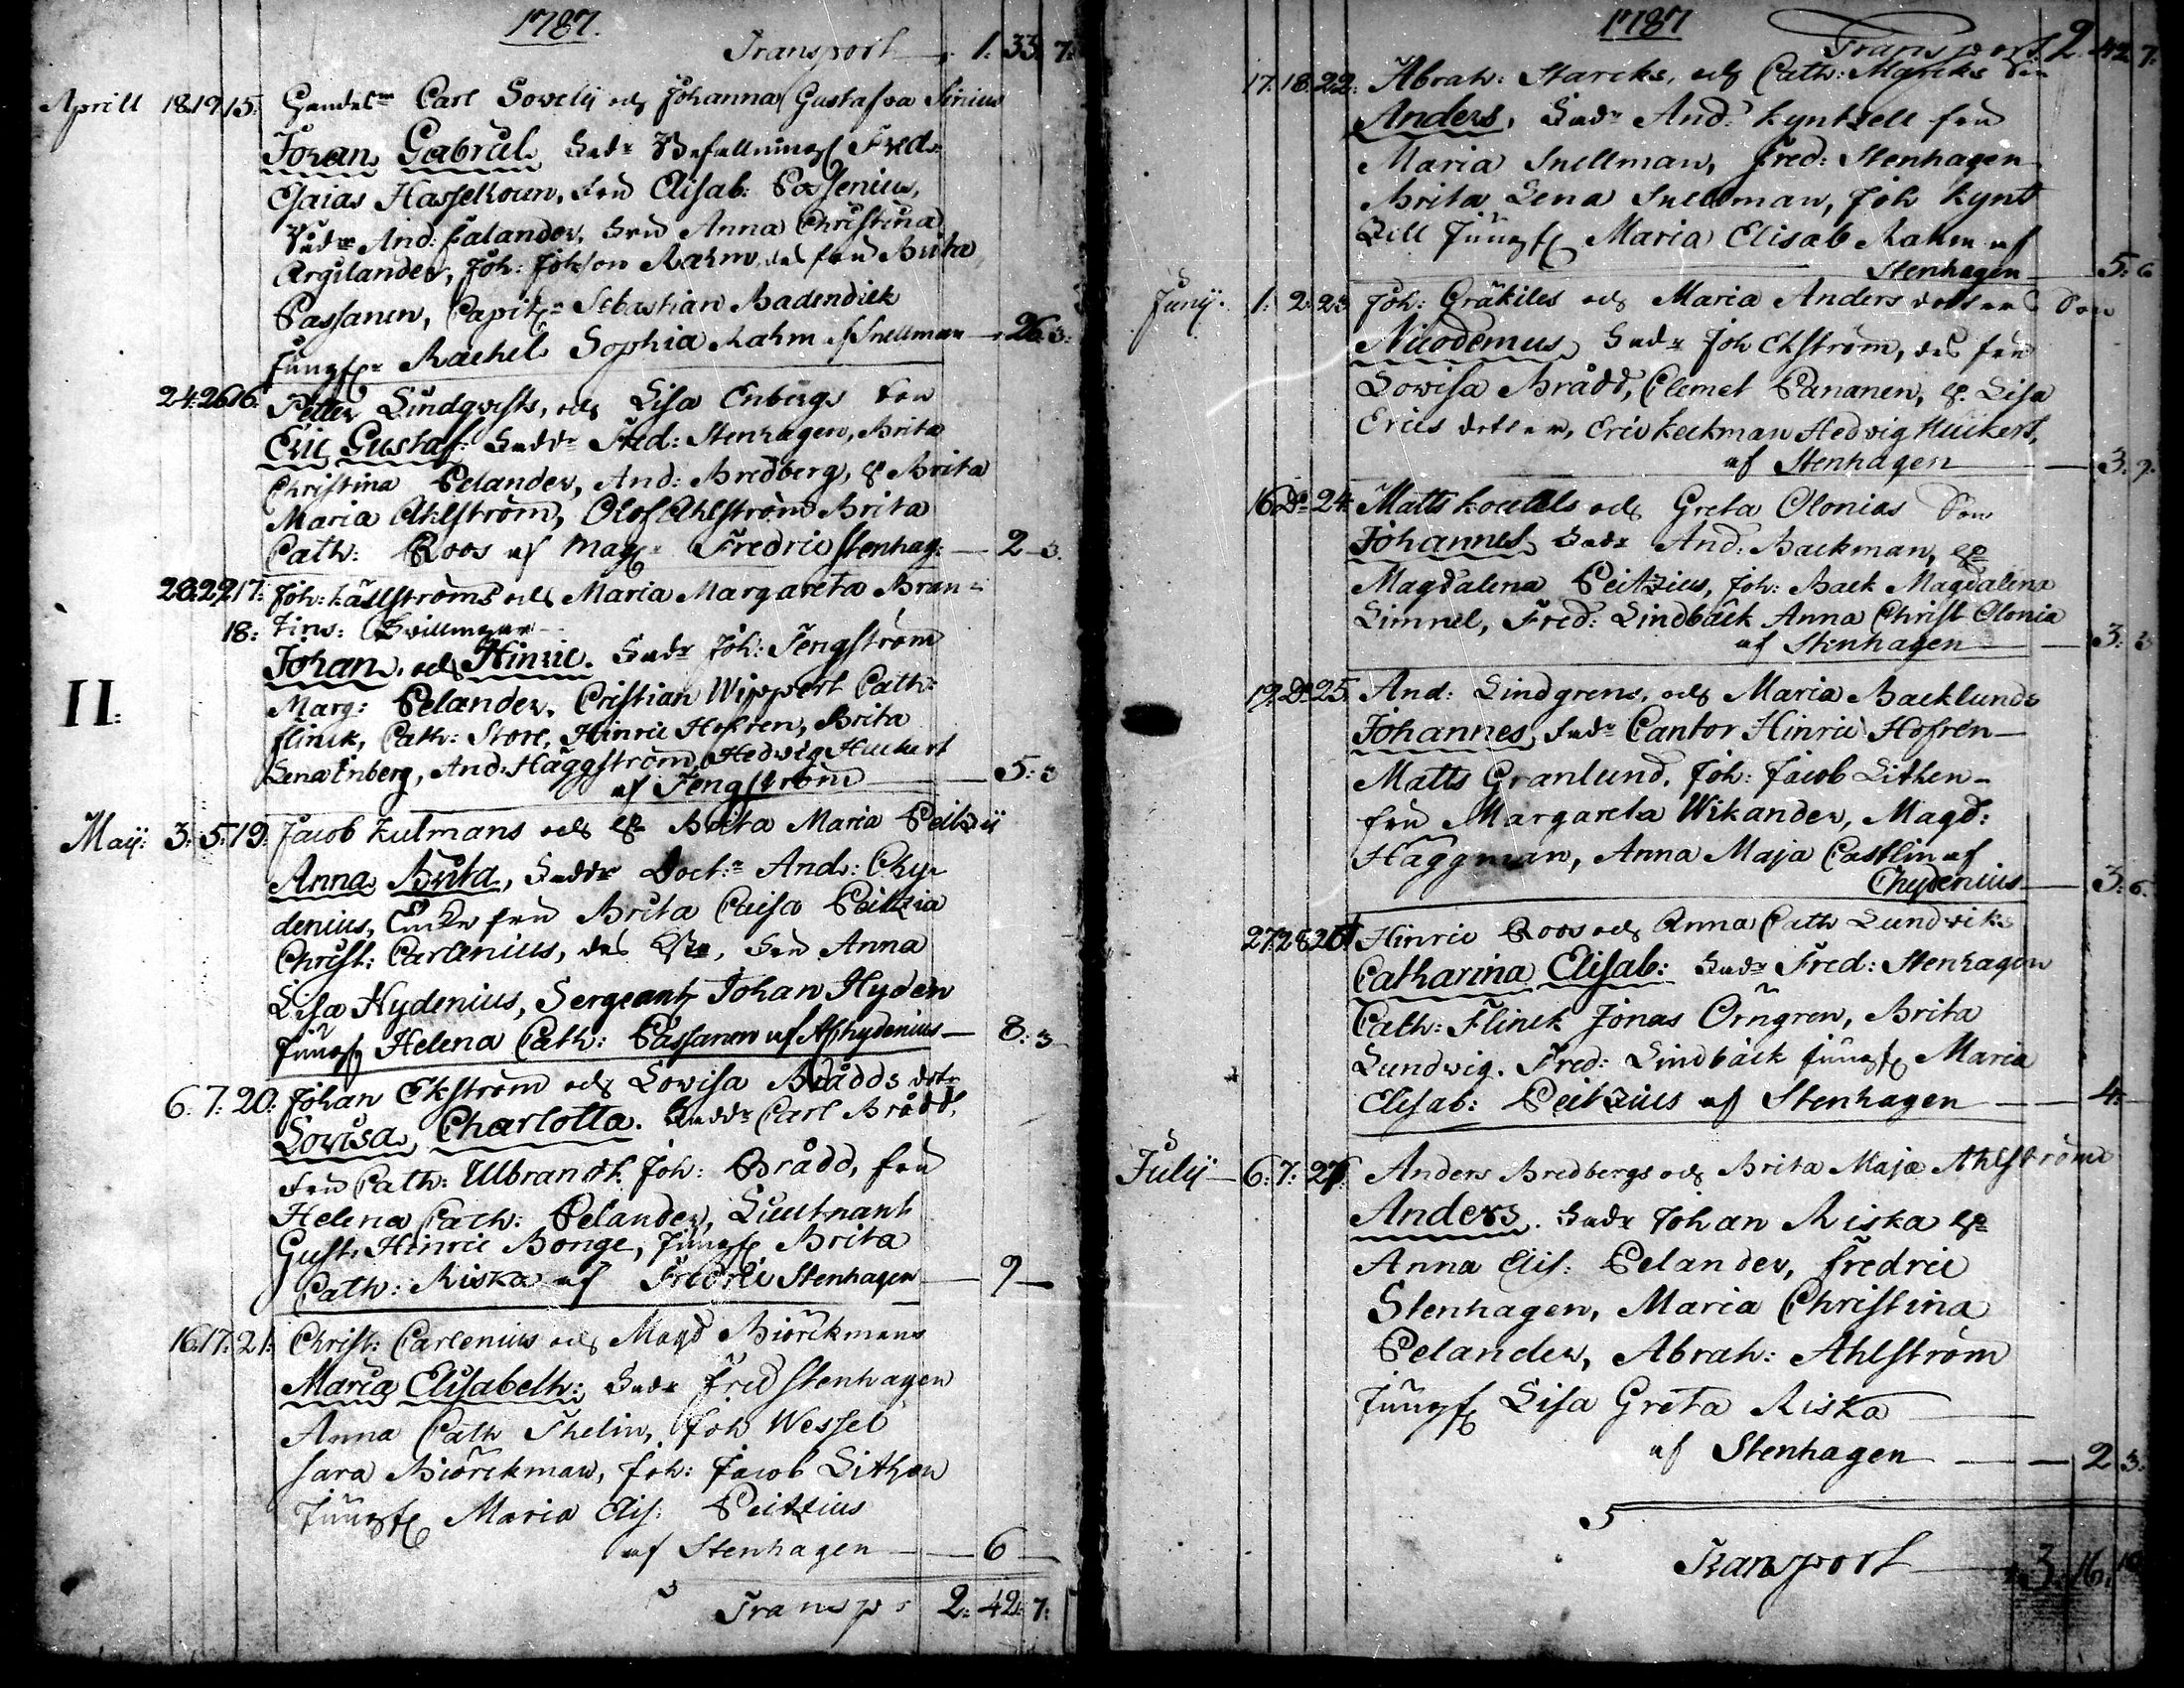 1787.
Transport 1: 33: 7:
Aprill 18. 19. 15. Carl Sovelii och Johanna Gustafva
Johan Gabriel. Fadr Befallningsm Fred:
Esaias Hasselkoun, fru Elisab: Possenius,
And: Falander, fru Anna Christina
Argilander, Joh: Johson Rahm, des fru Brita
Passanen, Capit: Sebastian Badendiek
Jungfr Rachel Sophia Rahm af Snellman 26: 3:
24: 26 16: Petter Lindqvists, och Lisa Enbergs Son
Eric Gustaf. Faddr Fred: Stenhagen, Brita
Christina Pelander, And: Bredberg, & Brita
Maria Ahlström, Olof Ahlström Brita
Cath: Roos af Mag Fredric Stenhag: 2 3.
28: 29 17: Joh: Källströms och Maria Margareta Bran-
18: tins: Tvillingar
II: Johan, och Hinric. Fadr Joh: Tengström
Marg: Pelander, Cristian Wippert Cath:
Flinck, Cath: Store, Hinric Hofren, Brita
Lena Enberg, And: Häggström, Hedvig Huckert
af Tengström 5: 3
Maij: 3: 5: 19: Jacob Kulmans och Brita Maria Peitzii
Anna Brita, Faddr Doct: And: Chy-
denius, fru Brita Caisa Peitzia
Christ: Carlenius, des fru Anna
Lisa Hydenius, Sergeant Johan Hyden
Jungf Helena Cath: Passanen af A Chydenius 8: 3
6: 7: 20: Johan Ekström och Lovisa Brådds dotr
Lovisa, Charlotta. Faddr Carl Brådd,
fru Cath: Ulbrandt Joh: Brådd, fru
Helena Cath: Pelander, Lieutnant
Gust: Hinric Bonge, Jungf Brita
Cath: Riska af Fredric Stenhagen 9
16. 17: 21: Christ: Carlenius och Magd Biörckmans
Maria Elisabeth: Fadr Fred Stenhagen
Anna Cath Thelin, Joh Wessel
Sara Biörckman, Joh: Jacob Lithen
Jungf Maria Elis: Peitzius
af Stenhagen 6
Transp 2: 42: 7:
1787
Transport 2 42 7:
17. 18. 22: Abrah: Starcks, och Cath: Marcks Son
Anders. Fadr And: Kyntzell fru
Maria Snellman, Fred: Stenhagen
Brita Lena Snellman, Joh Kynt
zell Jungf Maria Elisab Rahm af
Stenhagen 5: 6
Junij. 1: 2: 23 Joh: Gräkiles och Maria Anders dotters Son
Nicodemus Fadr Joh Ekström, des fru
Lovisa Brådd, Clemet Pananen, & Lisa
Erics dotter, Eric Keckman Hedvig Huckert,
af Stenhagen 3: 9.
16 Do 24: Matts och Greta Olonias Son
Johannes Fadr And: Backman,
Magdalena Peitzius, Joh: Back Magdalena
Limnel, Fred: Lindbäck Anna Christ Olonia
af Stenhagen 3: 3
19. Do 25. And: Lindgrens, och Maria Backlunds
Johannes, Fadr Cantor Hinric Hofren
Matts Granlund, Joh: Jacob Lithen
fru Margareta Wikander, Magd:
Häggman, Anna Maja Castlin af
Chydenius 3: 6.
27: 28 26 Hinric Roos och Anna Cath Lundviks
Catharina Elisab: Fadr Fred: Stenhagen
Cath: Flinck Jonas Örngren, Brita
Lundvig. Fred: Lindbäck Jungf Maria
Elisab: Peitzius af Stenhagen 4:
Julij 6: 7: 27 Anders Bredbergs och Brita Maja Ahlströms
Anders. Fadr Johan Riska
Anna Elis: Pelander, Fredric
Stenhagen, Maria Christina
Pelander, Abrah: Ahlström
Jungf Lisa Greta Riska
af Stenhagen 2 3:
Transport 3. 16. 10